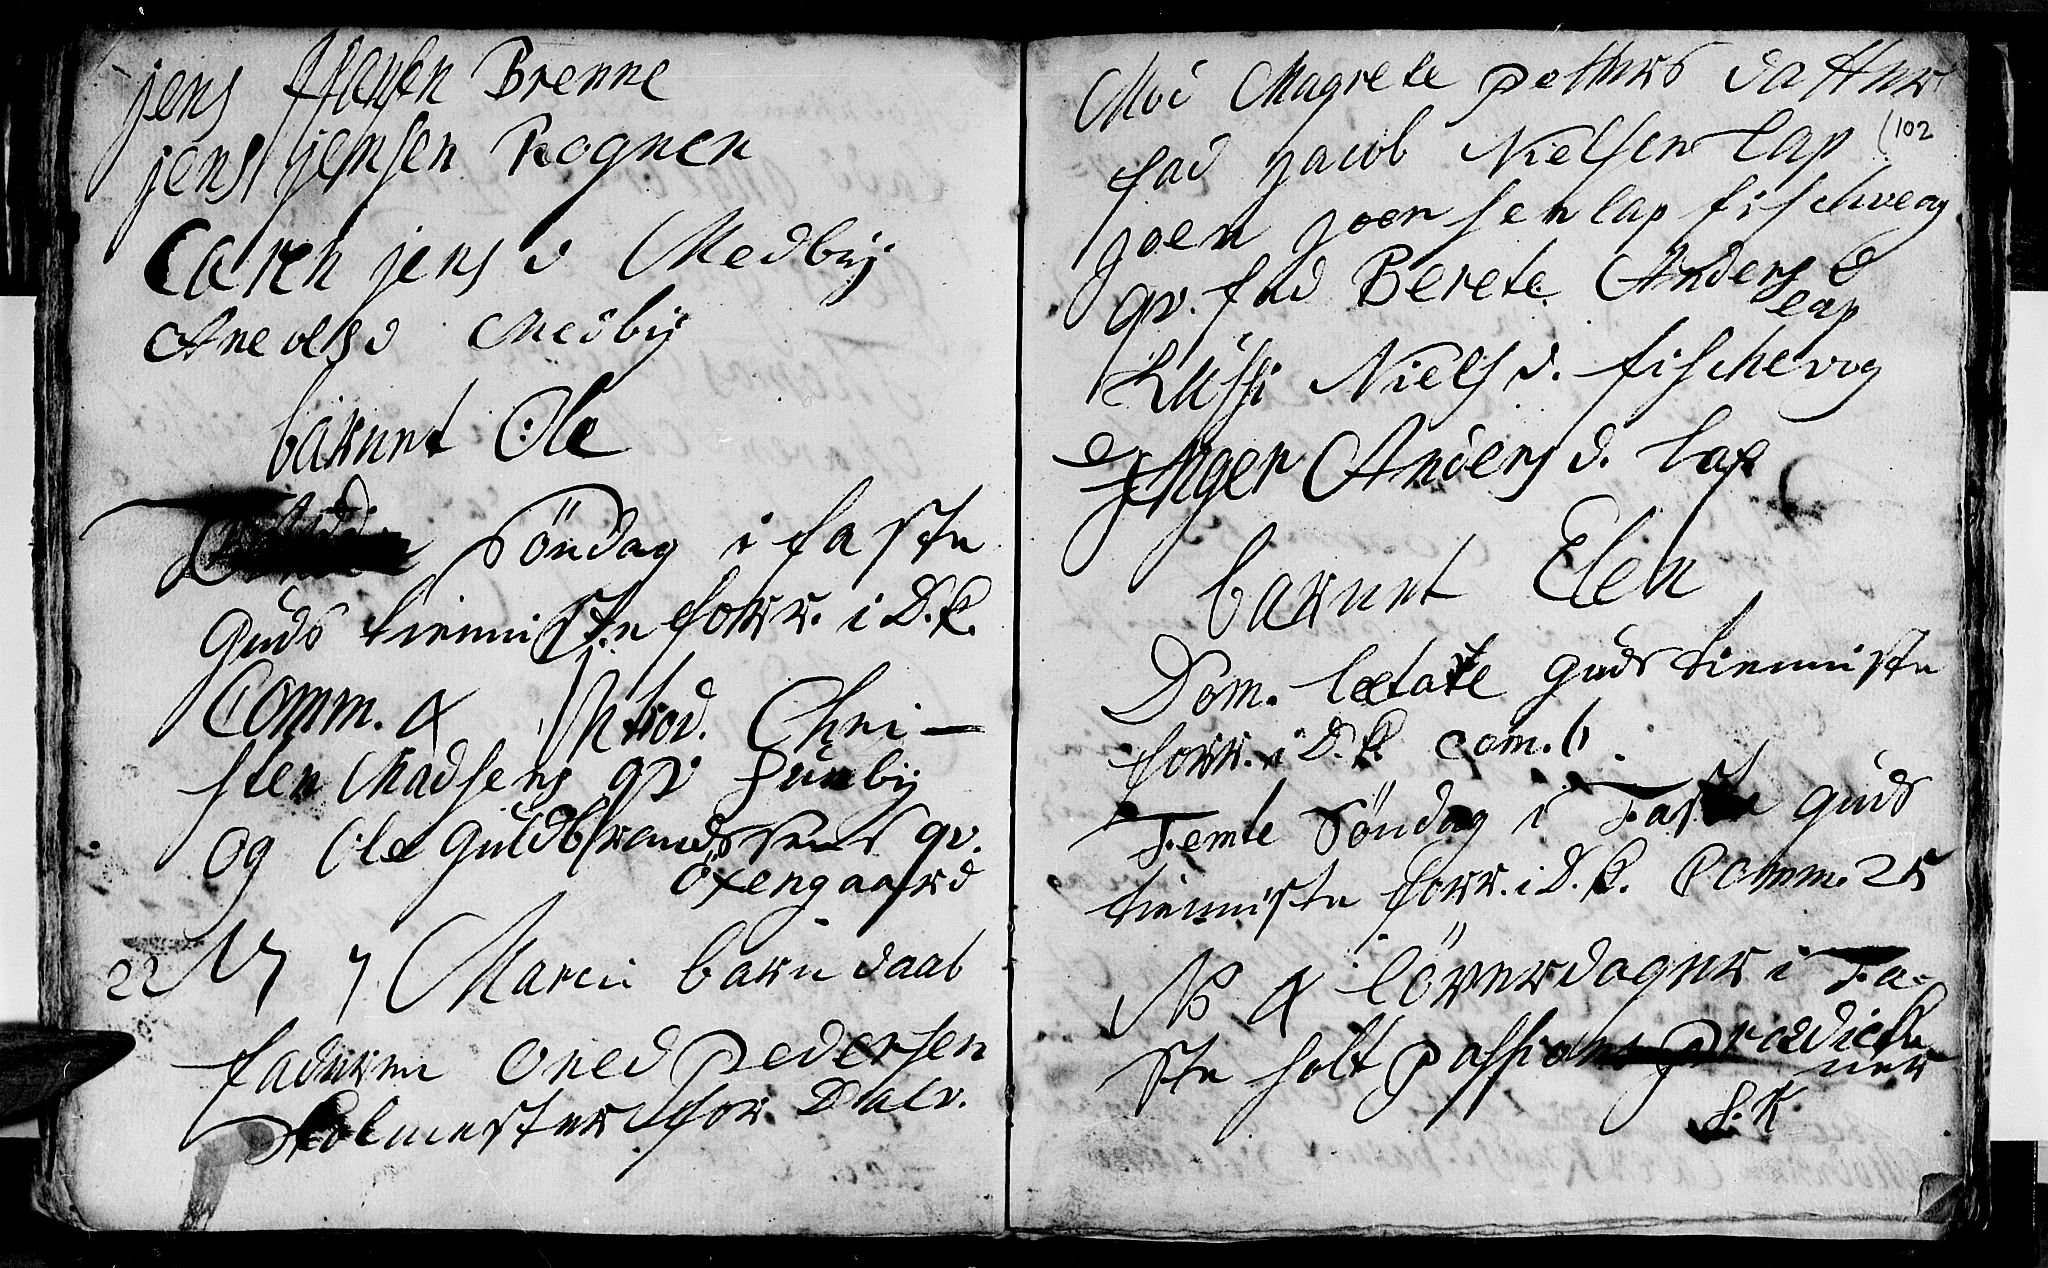 jens Hansen Brenne
jens jensen Rognen
Caren jens d Medbÿ
Ane ols d Medbÿ
barnet Ole
Söndag i faste
Guds tienniste forr. i D. K.
Comm. 4 Introd. Chri-
sten Madsens qv Hunbÿ
og Ole Guldbrandssens qv.
Öxengaard
22 17 7 Marci barn daab
faderen Oned Pedersen
Skolmester for Dalv.
Mod Magrete Petters datter
102
fad jacob Nielsen lap
joen joensen lap fischevog
qv. fad Berete Anders d
lap
Lussi Niels d. fischevog
Inger Anders d. lap
barnet Elen
Dom. lætare guds tienniste
forr. i D. K. com. 6
Femte Söndag i Faste guds
tienniste forr. i D. K. Comm. 25
NB 4 löverdager i Fa-
ste holt passions prædicke
ner
H. K.